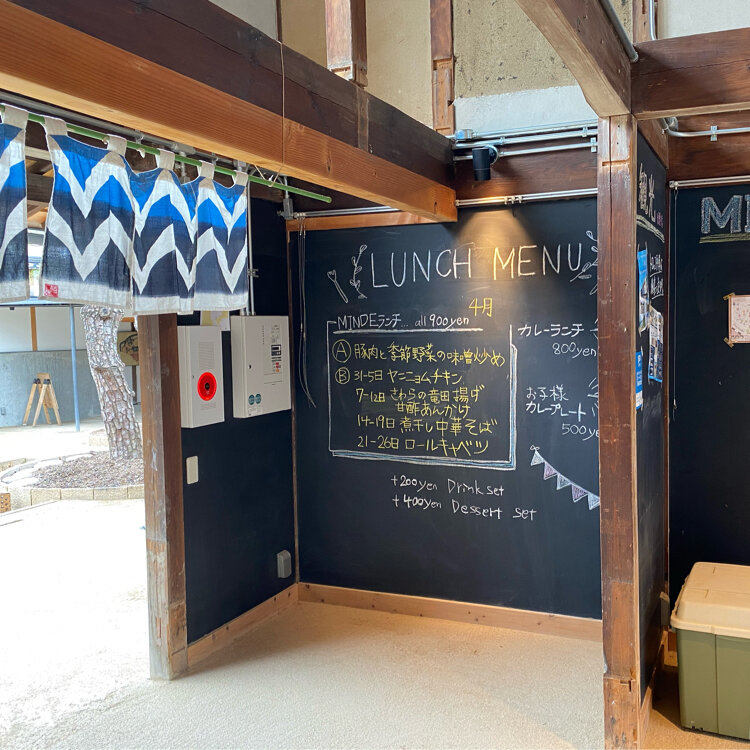 LUNCH MENU
4月
MINDEランチ... all 900yen
Ⓐ 豚肉と季節野菜の味噌炒め
Ⓑ 31-5日 ヤンニョムチキン
7-12日 さわらの竜田揚げ
甘酢あんかけ
14-19日 煮干し中華そば
21-26日 ロールキャベツ
カレーランチ
800yen
お子様
カレープレート
500yen
+200yen Drink set
+400yen Dessert set
観光